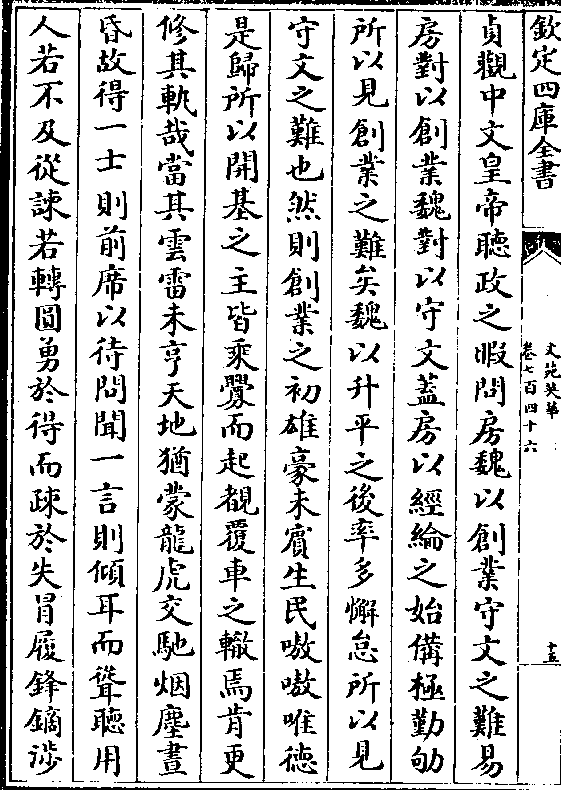 欽定四庫全書
文苑英華
卷七百四十六
十五
貞觀中文皇帝聽政之暇問房魏以創業守文之難易
房對以創業魏對以守文蓋房以經綸之始備極勤劬
所以見創業之難矣魏以升平之後率多懈怠所以見
守文之難也然則創業之初雄豪未賓生民嗷嗷唯德
是歸所以開基之主皆乘釁而起覩覆車之轍焉肯更
修其軌哉當其雲雷未亨天地猶蒙龍虎交馳烟塵晝
昏故得一士則前席以待問聞一言則傾耳而聳聽用
人若不及從諫若轉圓勇於得而疎於失冒履鋒鏑涉